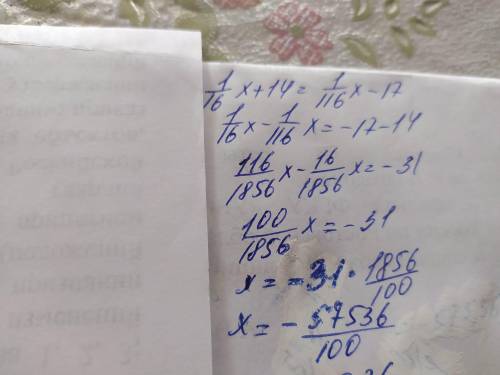 1/16 x + 14 = 1/116 x - 17
1/16 x - 1/116 x = -17 - 14
116/1856 x - 16/1856 x = -31
100/1856 x = -31
x = -31 · 1856/100
x = - 57536/100